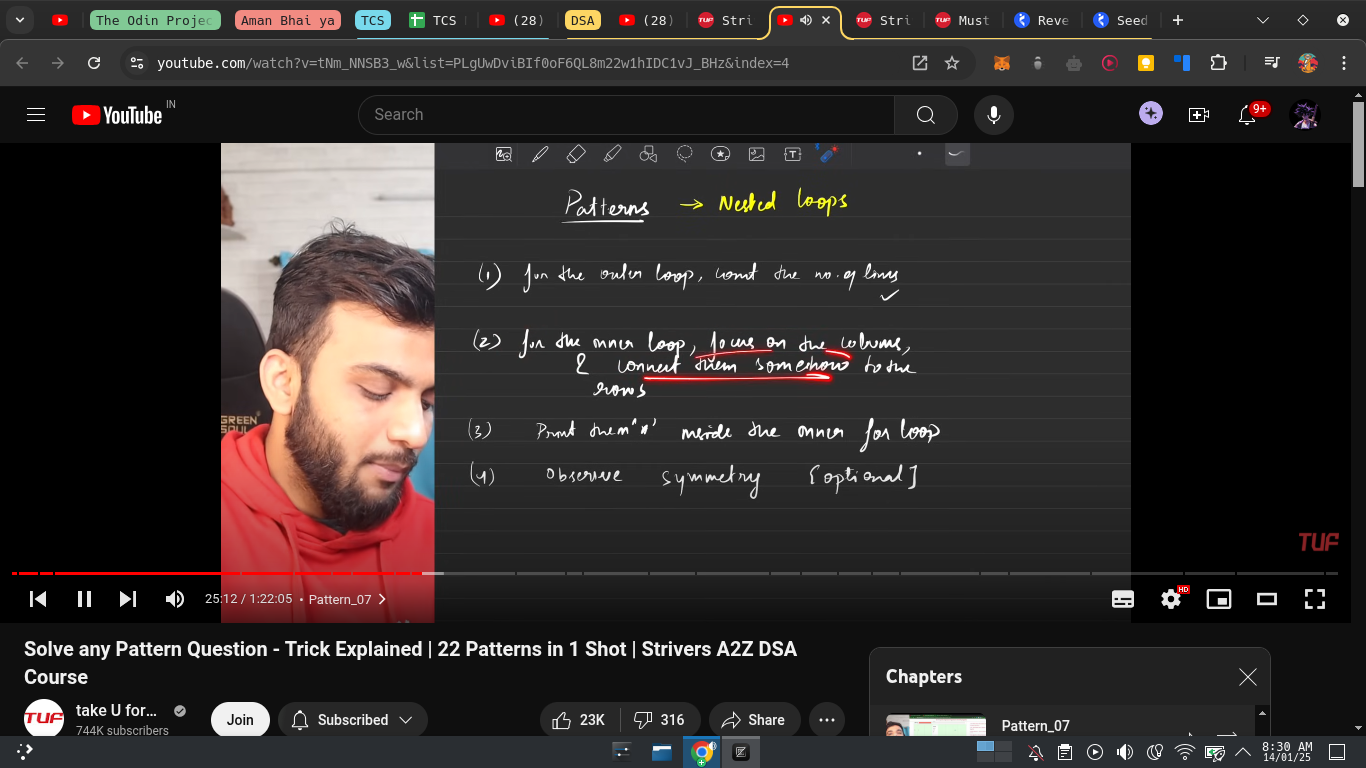 The Odin Projec
Aman Bhai ya
TCS
TCS
(28)
DSA
(28)
Stri
Stri
Must
Reve
Seed
youtube.com/watch?v=tNm_NNSB3_w&list=PLgUwDviBIf0oF6QL8m22w1hIDC1vJ_BHz&index=4
YouTube IN
Search
9+
Patterns → Nested loops
(1) for the outer loop, count the no. of lines
(2) for the inner loop, focus on the columns,
& connect them somehow to the
rows
(3) Print them '*' inside the inner for loop
(4) Observe symmetry [optional]
GREEN
SOUL
TUF
25:12 / 1:22:05 • Pattern_07
HD
Solve any Pattern Question - Trick Explained | 22 Patterns in 1 Shot | Strivers A2Z DSA
Course
TUF
take U for...
744K subscribers
Join
Subscribed
23K
316
Share
Chapters
Pattern_07
8:30 AM
14/01/25